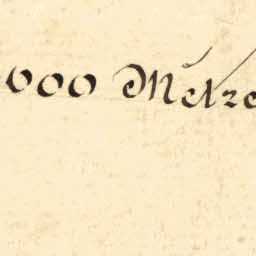 000 Metze